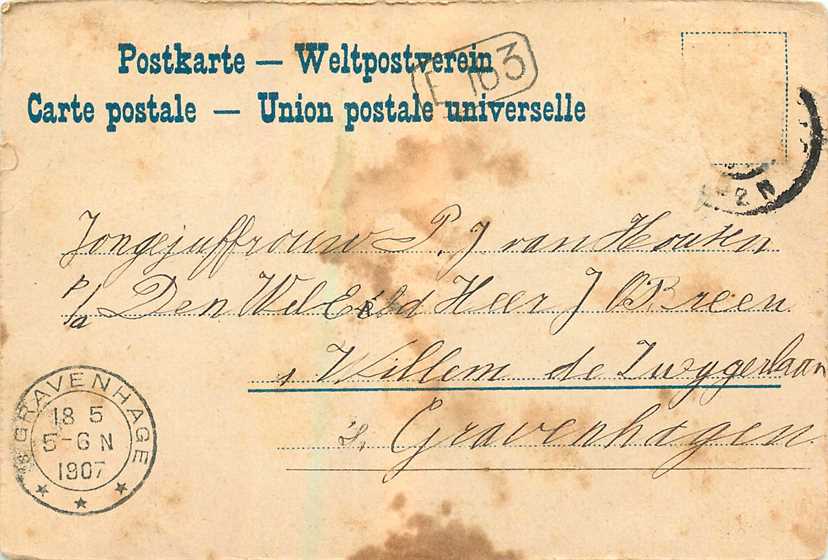 Postkarte — Weltpostverein
Carte postale — Union postale universelle
E 163
2 N
Jongejuffrouw P. J van Houten
p/a Den Wel Ed Heer J Breen
Willem de Zwygerlaan
's Gravenhagen
'S GRAVENHAGE
18 5
5-6 N
1907